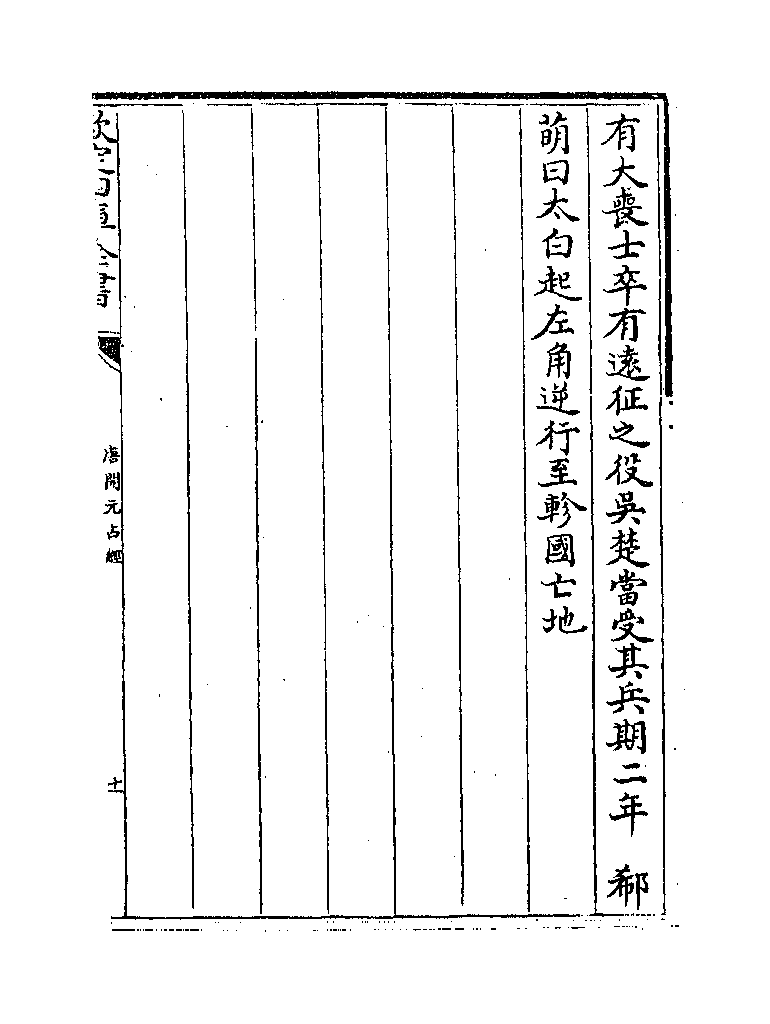 有大喪士卒有遠征之役吳楚當受其兵期二年　郗
萌曰太白起左角逆行至軫國亡地
欽定四庫全書
唐開元占經
十一